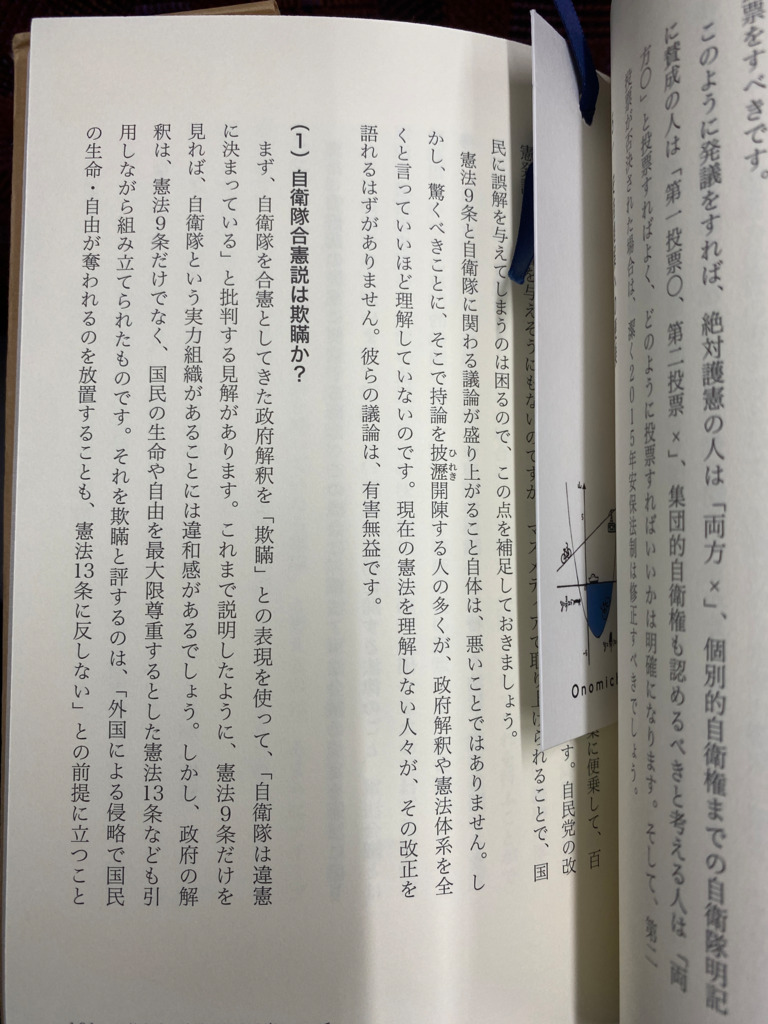 票をすべきです。
このように発議をすれば、絶対護憲の人は「両方×」、個別的自衛権までの自衛隊明記
に賛成の人は「第一投票〇、第二投票×」、集団的自衛権も認めるべきと考える人は「両
方〇」と投票すればよく、どのように投票すればいいかは明確になります。そして、第二
投票が否決された場合は、潔く2015年安保法制は修正すべきでしょう。
案に便乗して、百
す。自民党の改
を与えそうにもないのですが、マスメディアで取り上げられることで、国
民に誤解を与えてしまうのは困るので、この点を補足しておきましょう。
憲法9条と自衛隊に関わる議論が盛り上がること自体は、悪いことではありません。し
かし、驚くべきことに、そこで持論を披瀝開陳する人の多くが、政府解釈や憲法体系を全
ひれき
くと言っていいほど理解していないのです。現在の憲法を理解しない人々が、その改正を
語れるはずがありません。彼らの議論は、有害無益です。
(1) 自衛隊合憲説は欺瞞か?
まず、自衛隊を合憲としてきた政府解釈を「欺瞞」との表現を使って、「自衛隊は違憲
に決まっている」と批判する見解があります。これまで説明したように、憲法9条だけを
見れば、自衛隊という実力組織があることには違和感があるでしょう。しかし、政府の解
釈は、憲法9条だけでなく、国民の生命や自由を最大限尊重するとした憲法13条なども引
用しながら組み立てられたものです。それを欺瞞と評するのは、「外国による侵略で国民
の生命・自由が奪われるのを放置することも、憲法13条に反しない」との前提に立つこと
Onomic